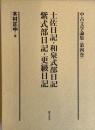 中古文学論集 第四巻
土佐日記・和泉式部日記
紫式部日記・更級日記
木村正中 著